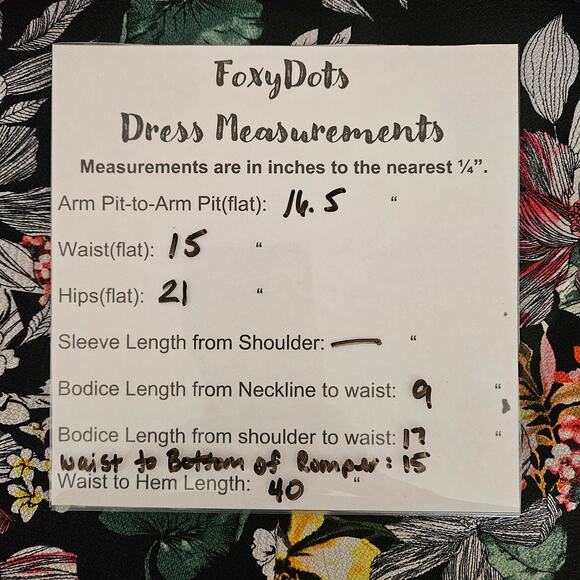 FoxyDots
Dress Measurements
Measurements are in inches to the nearest ¼”.
Arm Pit-to-Arm Pit(flat): 16.5 “
Waist(flat): 15 “
Hips(flat): 21 “
Sleeve Length from Shoulder: — “
Bodice Length from Neckline to waist: 9 “
Bodice Length from shoulder to waist: 17 “
waist to Bottom of Romper: 15
Waist to Hem Length: 40 “